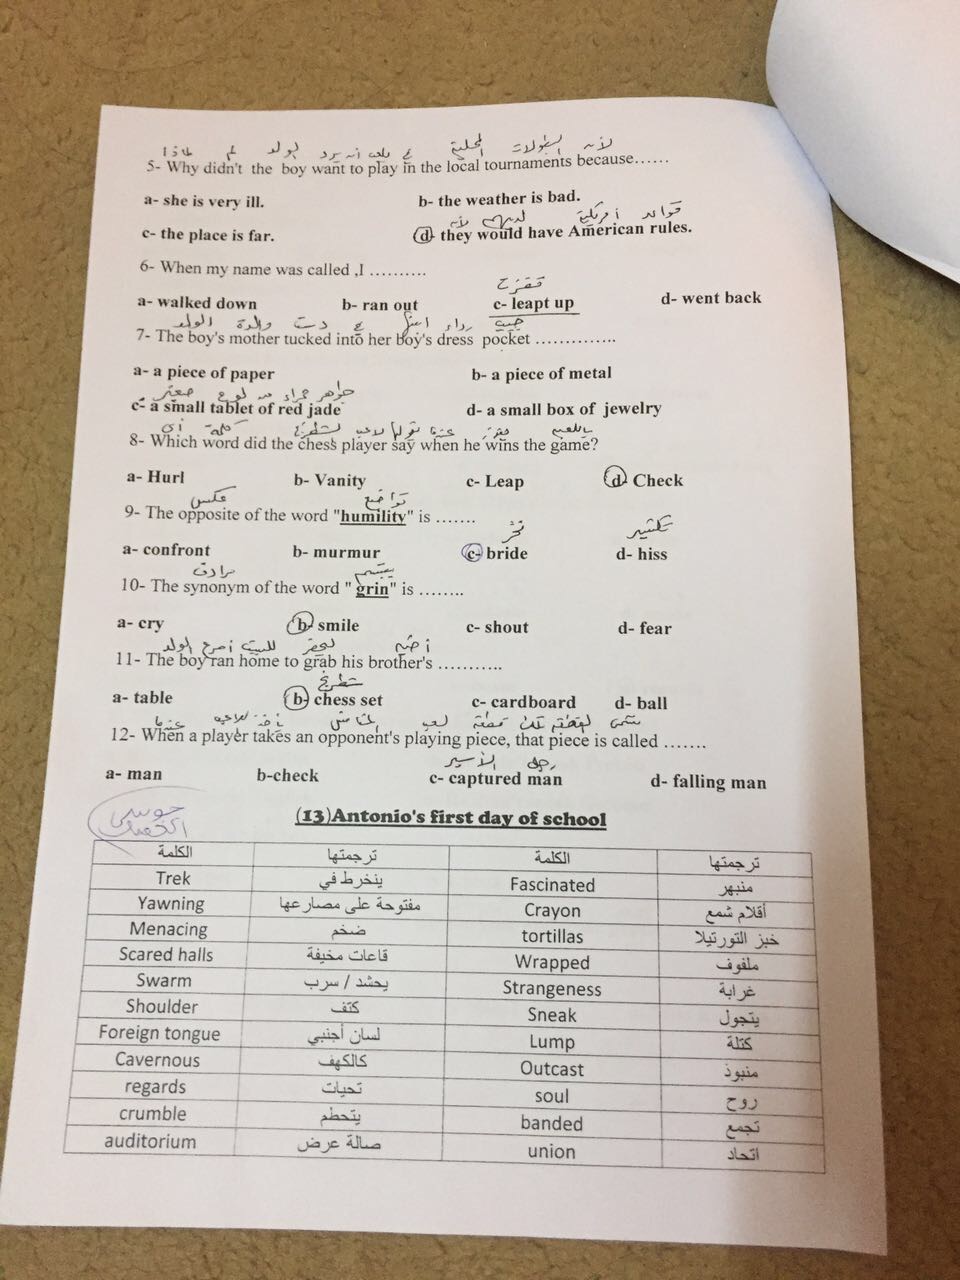 لأنه البطولات المحلية في يلعب أنه يريد الولد لم لماذا
5- Why didn't the boy want to play in the local tournaments because……
a- she is very ill. b- the weather is bad.
قواعد أمريكية لديهم لأنه
c- the place is far. d- they would have American rules.
6- When my name was called ,I ……….
قفزت
a- walked down b- ran out c- leapt up d- went back
جيب رداء ابنها في دست والدة الولد
7- The boy's mother tucked into her boy's dress pocket …………..
a- a piece of paper b- a piece of metal
جواهر حمراء من لوح صغير
c- a small tablet of red jade d- a small box of jewelry
لاعب الشطرنج كلمة أي
8- Which word did the chess player say when he wins the game?
a- Hurl b- Vanity c- Leap d- Check
تواضع عكس
9- The opposite of the word "humility" is …….
a- confront b- murmur c- bride d- hiss
يبتسم مرادف
10- The synonym of the word " grin" is ……..
a- cry b- smile c- shout d- fear
للبيت الولد
11- The boy ran home to grab his brother's ………..
شطرنج
a- table b- chess set c- cardboard d- ball
12- When a player takes an opponent's playing piece, that piece is called …….
رجل الأسير
a- man b-check c- captured man d- falling man
(13)Antonio's first day of school
الكلمة ترجمتها الكلمة ترجمتها
Trek ينخرط في Fascinated منبهر
Yawning مفتوحة على مصارعها Crayon أقلام شمع
Menacing ضخم tortillas خبز التورتيلا
Scared halls قاعات مخيفة Wrapped ملفوف
Swarm يحشد / سرب Strangeness غرابة
Shoulder كتف Sneak يتجول
Foreign tongue لسان أجنبي Lump كتلة
Cavernous كالكهف Outcast منبوذ
regards تحيات soul روح
crumble يتحطم banded تجمع
auditorium صالة عرض union اتحاد